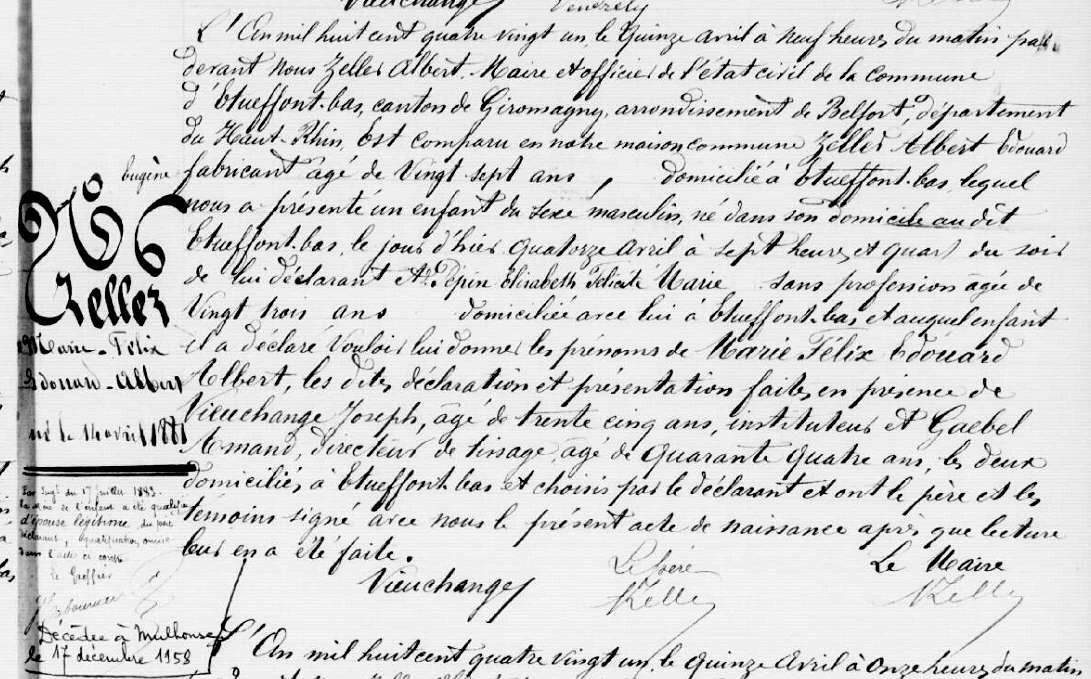 Vieuchange
L'An mil huit cent quatre vingt un, le Quinze Avril à neuf heures du matin par
devant nous Zeller Albert, Maire et officier de l'état civil de la commune
d'Etueffont-bas, canton de Giromagny, arrondissement de Belfort, département
du Haut-Rhin, Est comparu en notre maison commune Zeller Albert Edouard
Eugène fabricant âgé de Vingt sept ans, domicilié à Etueffont-bas, lequel
nous a présenté un enfant du sexe masculin, né dans son domicile au dit
Etueffont-bas, le jour d'hier quatorze Avril à sept heures et quart du soir
de lui déclarant et de Pépin Elisabeth Félicité Marie sans profession âgée de
Vingt trois ans domiciliée avec lui à Etueffont-bas, et auquel enfant
il a déclaré vouloir lui donner les prénoms de Marie Félix Edouard
Albert, les dites déclaration et présentation faites en présence de
Vieuchange Joseph, âgé de trente cinq ans, instituteur et Gaebel
Armand, directeur de tissage, âgé de Quarante quatre ans, les deux
domiciliés à Etueffont-bas et choisis par le déclarant et ont le père et les
témoins signé avec nous le présent acte de naissance après que lecture
leur en a été faite.
Le père
Le Maire
Vieuchange
AZeller
AZeller
No 6
Zeller
Marie-Félix
Edouard-Albert
né le 14 avril 1881
Par Jugt du 17 Juillet 1893
la mère de l'enfant a été qualifiée
d'épouse légitime du père
déclarant, qualification omise
dans l'acte ci contre
le Greffier
Décédée à Mulhouse
le 17 décembre 1958
L'An mil huit cent quatre vingt un, le Quinze Avril à onze heures du matin